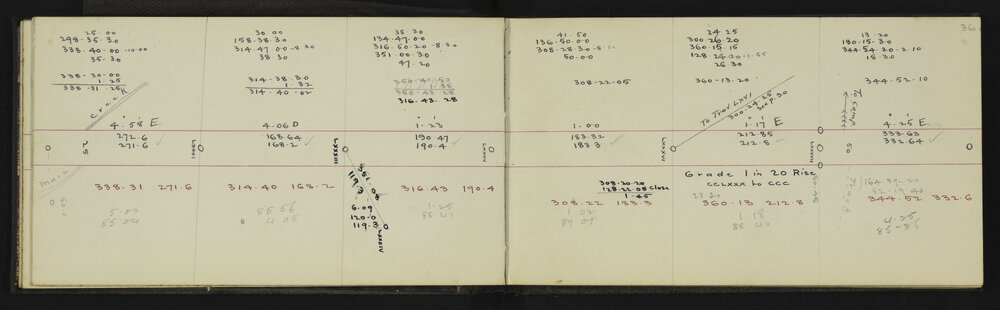 36
25.00
298.35.30
338.40.00 -10.00
35.30
338.30.00
1.25
338.31.25
creek
4.58 E
272.6
271.6
25
main
338.31 271.6
5.00
LXXXI
30.00
158.38.30
314.47.00 -8.30
38.30
314.38.30
1.32
314.40.02
4.06 D
168.64
168.2
314.40 168.2
85.56
4.08
LXXXIII
351.08
119.3
6.09
120.0
119.3
LXXXIV
38.30
134.47.00
316.50.20 -8.30
351.00.30
47.20
316.43.28
1.23
190.47
190.4
316.43 190.4
1.25
88.41
LXXXV
41.50
136.50.00
308.28.30
50.00
308.22.05
1.00
183.32
183.3
308.20.20
128.22.08 close
1.45
308.22 183.3
1 02
89 02
LXXXVI
24 25
300 26.20
360.15.15
128 24.00 -1.55
26 30
360.13.20
To Trav LXVI
300.24.25
see p. 30
1.17 E
212.85
212.8
Grade 1 in 20 Rise
CCLXXX to CCC
23.20
360.13 212.8
1 18
88.40
13.20
180.15.30
344.54.20 -2.10
15.30
344.52.10
To camp
4.25 E
333.63
332.64
50
344.52 332.6
4.25